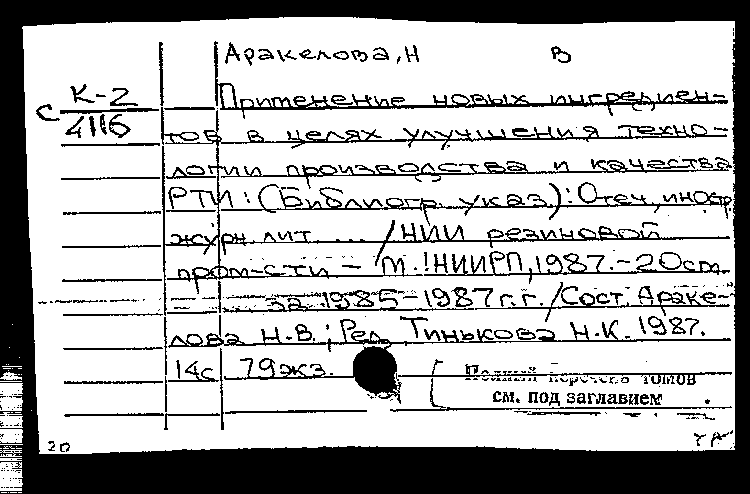 Аракелова, Н В
К-2
С 4116
Применение новых ингредиен-
тов в целях улучшения техно-
логии производства и качества
РТИ: (Библиогр. указ): Отеч, иностр
журн. лит. ... / НИИ резиновой
пром-сти - М.: НИИРП, 1987. - 20 см
... за 1985-1987 г.г. / Сост. Араке-
лова Н.В.; Ред. Тинькова Н.К. 1987.
14с. 79 экз.
Полный перечень томов
см. под заглавием
20